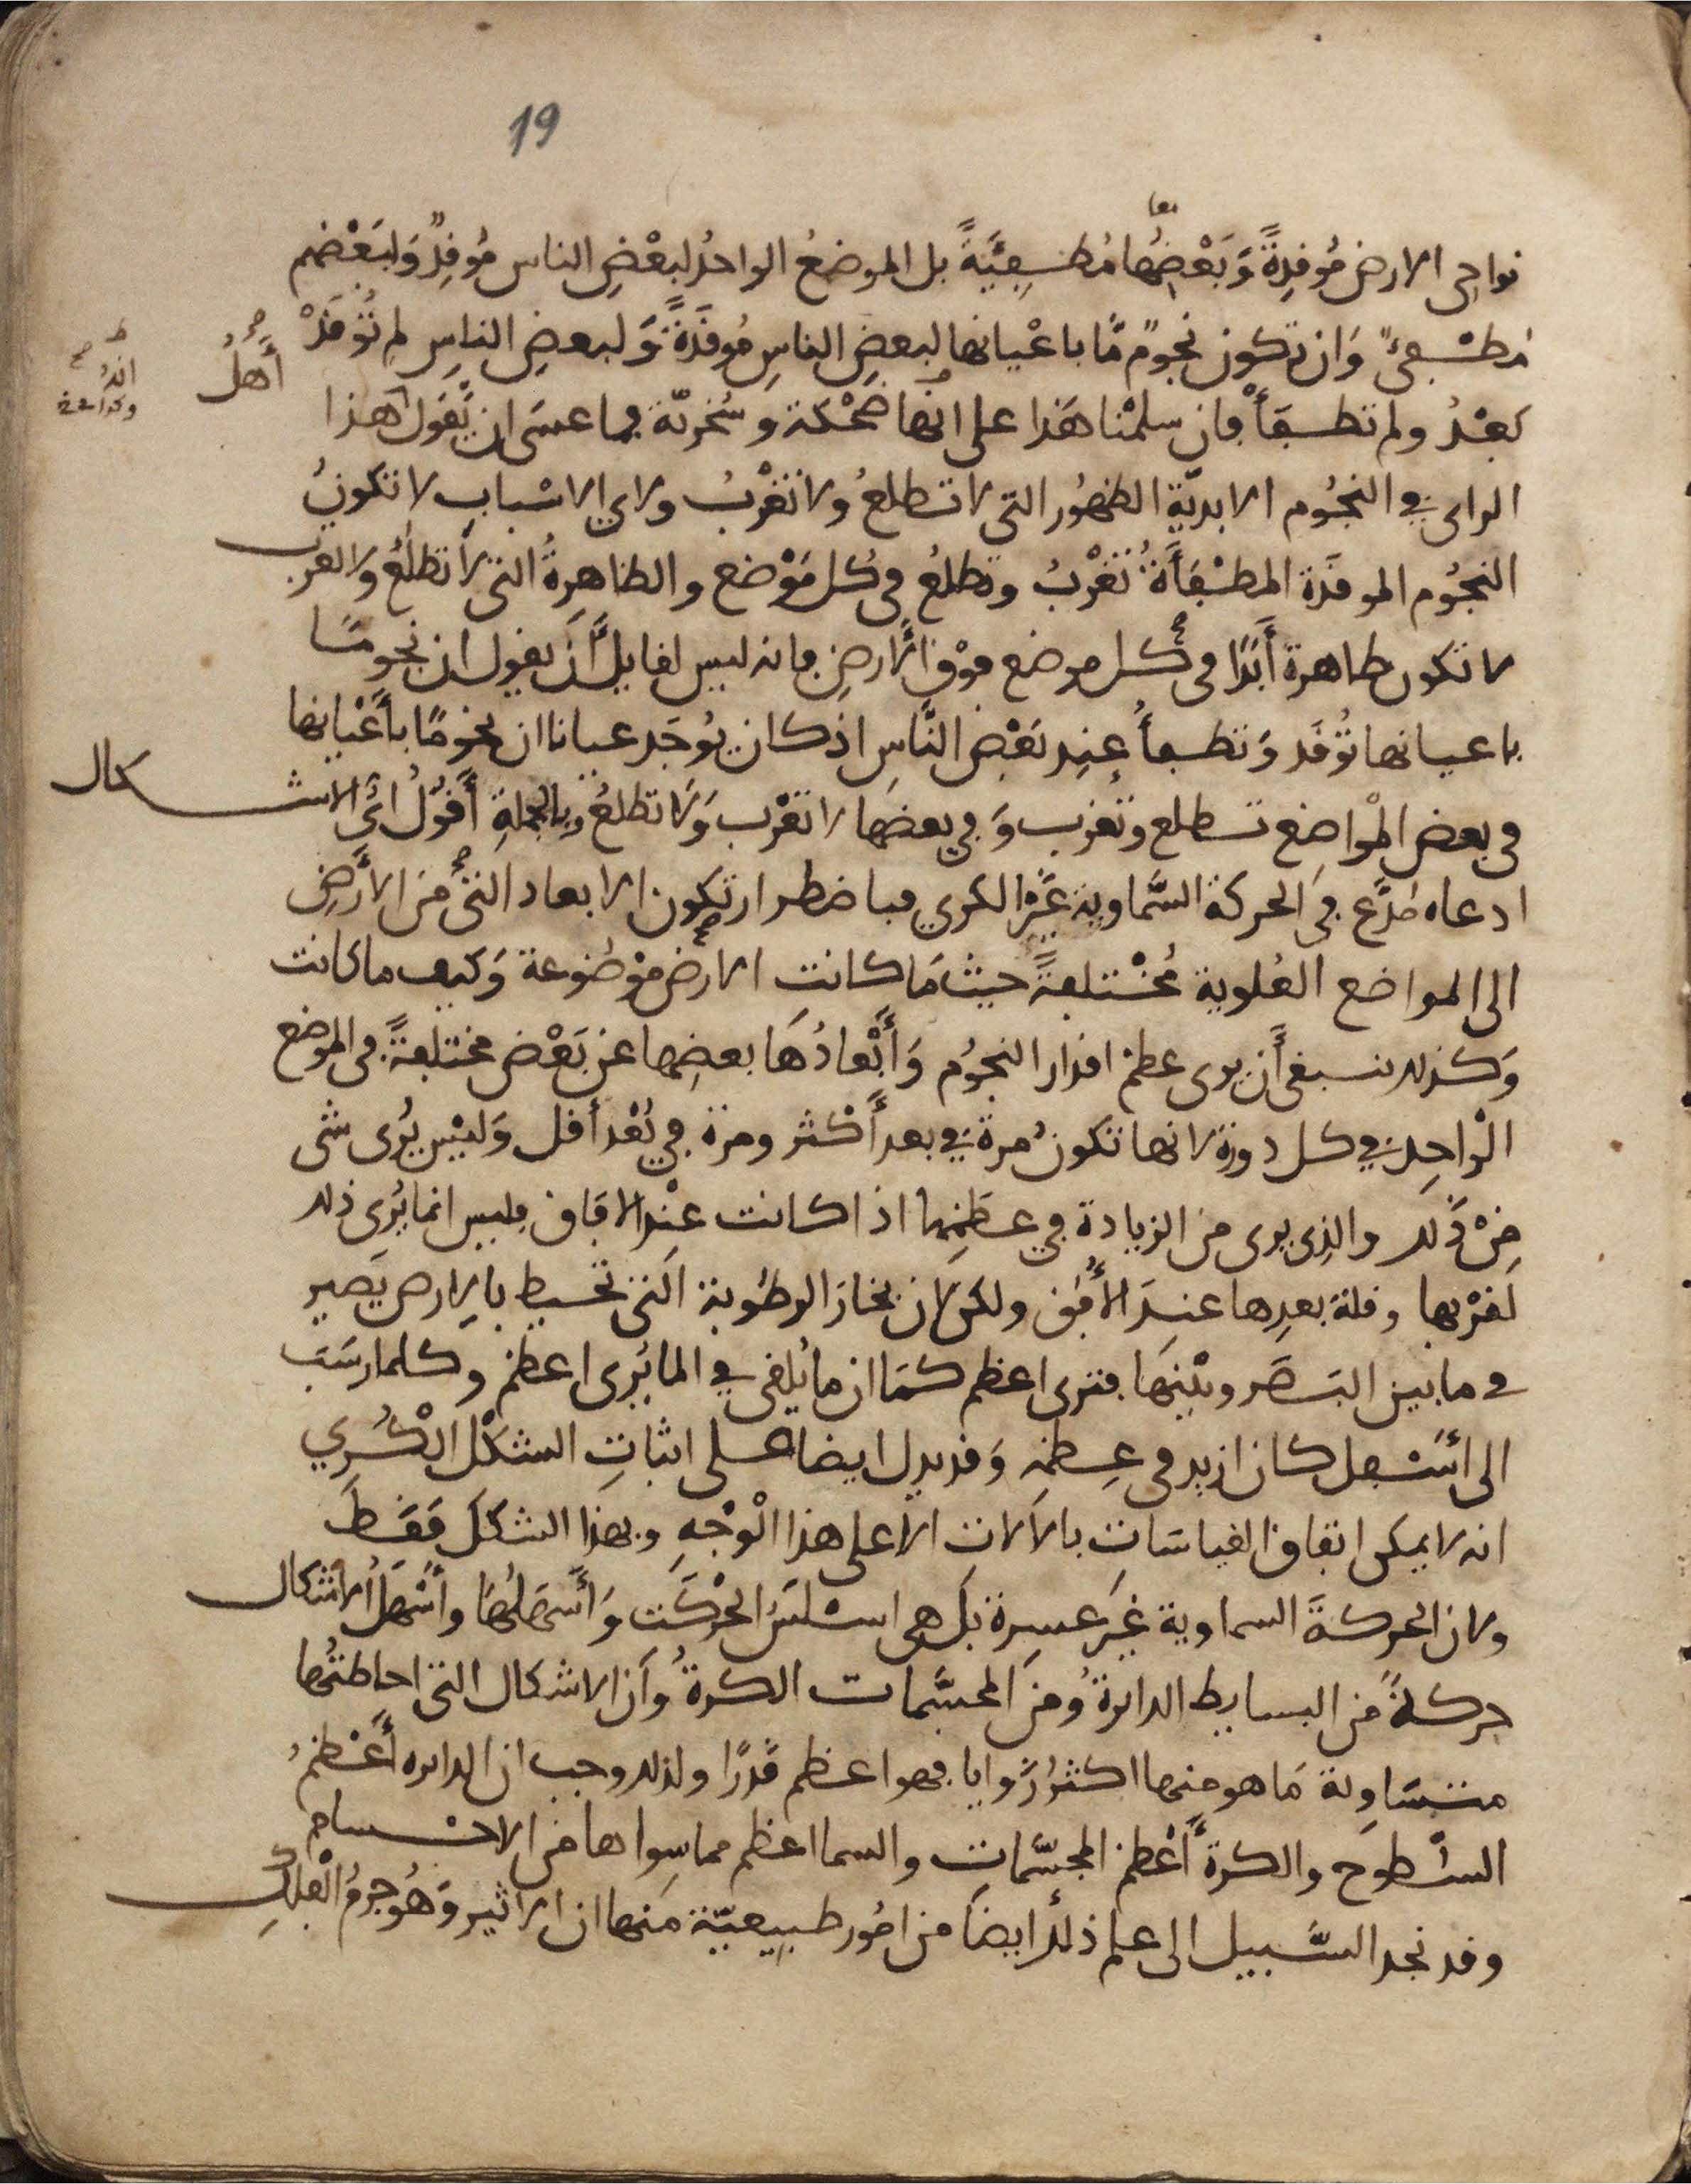 19
معا
نواحى الارض مُوقِدةً وَبَعْضُها مُطفِئَةً بل الموضعُ الواحدُ لبعْضِ الناس مُوقِدٌ وَلبَعْضهم
مُطفىٌٔ وَان تكون نجومٌ مّا باعْيانها لبعضِ الناسِ مُوقَدَةً وَلبعضِ الناسِ لم تُوقَدْ
بَعْدُ ولم تطفَأْ فان سلمْنا هَذا على انها ضُحْكة وسُخريّة فما عسَى ان يَّقول أَهلُ هذا
الراى في النجُوم الابديّة الظهُور التى لا تطلعُ ولا تغْربُ ولاي الاسْبابِ لا تكونُ
النجُوم الموقَدَة المطفَأَةُ تَغْربُ وتطلعُ فى كُل مَوْضع والظاهِرةُ التى لا تطلُعُ ولا تغرب
لا تكون ظاهرة أَبَدًا فى كُل موضع فوْق الأَرضِ فانه ليس لقايل أَن يقول ان نجومًا
باعيانها تُوقَد وَتطفأُ عِند بَعْض النَّاسِ اذ كان يُوجَد عيانا ان نجومًا بأَعْيانها
فى بعض الْمواضِع تطلع وتغرب وَفي بعضها لا تغْرب وَلَا تطلعُ وبالجملةِ أَقولُ ائَ الاشكال
ادعاه مُدَّعٍ فى الحركة السَّماوية غيْر الكري فباضطرار تكون الابعاد التىُ من الأَرضِ
الى المواضع العُلوية مُختلفةً حيثُ مَا كانت الارض موْضُوعة وَكيف ما كانت
وَكذلك ينبغى أَن يرى عظمُ اقدار النجوُم وَأَبْعادُهَا بعضِها عن بَعْض مختلفةً فى الموضع
الْواحِد في كل دورة لانها تكونُ مرةً في بعد أَكثر ومرة في بُعْد أقل وَليْس يُرى شى
مِنْ ذَلك والذِى يرى من الزيادة في عظمِها اذا كانت عِنْد الافاق فليس انما يُرى ذلك
لقرْبها وقلة بعدِها عندَ الأُفق ولكن لان بخارَ الرطُوبة التى تحيط بالارض يَصير
في ما بين البَصَر وبيْنِها فترى اعظم كمَا ان ما يُلقى في الما يُرى اعظم وكلما رسَبَ
الى أسْفل كان ازيد فى عِظمه وَقد يدل ايضا على اثباتِ الشكْل الْكُري
انه لا يمكن اتفاق القياسَاتِ بالآلات الا على هذا الْوَجْهِ وبهذا الشكلَ فَقَط
ولان الحركةَ السماوية غيْر عسِرة بَل هى اسْلَس الحرْكَت وَأَسَهلُها وأسْهلُ الاشكال
حركةً من البسايط الدايرةُ ومنَ المجسَّمات الكرةُ وأن الاشكال التى احاطتُها
متسَاوِية مَا هو منها اكثرُ زوايا فهو اعظم قَدْرًا ولذلك وجب ان الدايره أَعْظمُ
السطوح والكرة أَعْظم المجسّماتِ والسما اعظم مما سِواها من الاجسام
وقد نجد السَّبيل الى علم ذلك ايضاً من امُور طبيعيّة منها ان الاثير وَهُو جِرمُ الْفلك